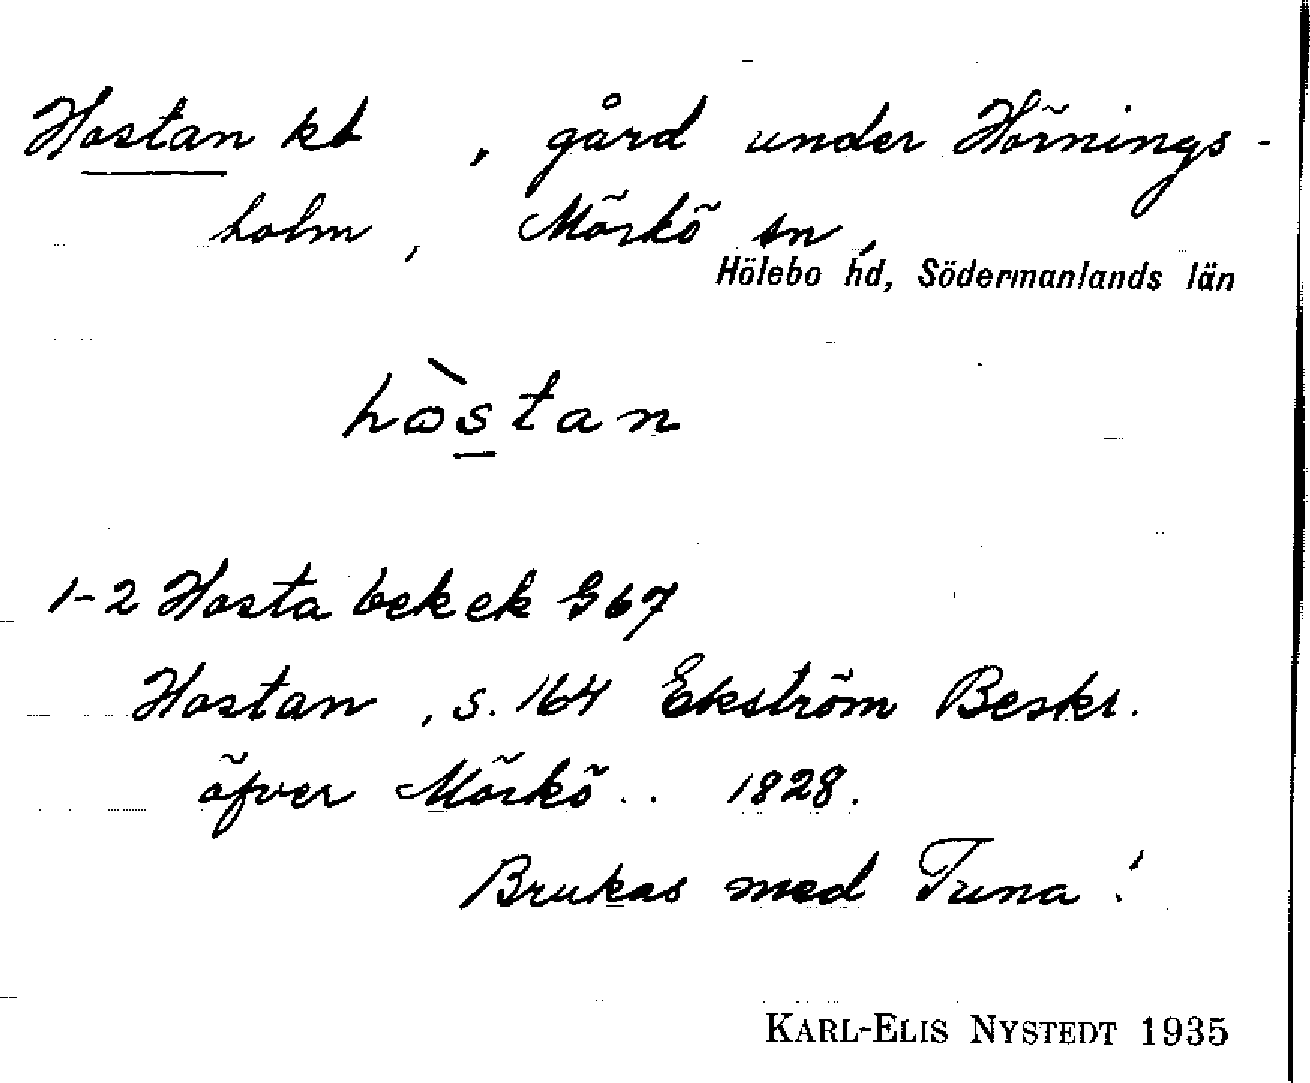 Hostan kb , gård under Hörnings-
holm, Mörkö sn,
Hölebo hd, Södermanlands län
hòstan
1-2 Hosta bek ek G67
Hostan, s. 164 Ekström Beskr.
öfver Mörkö.. 1828.
Brukas med Tuna!
KARL-ELIS NYSTEDT 1935